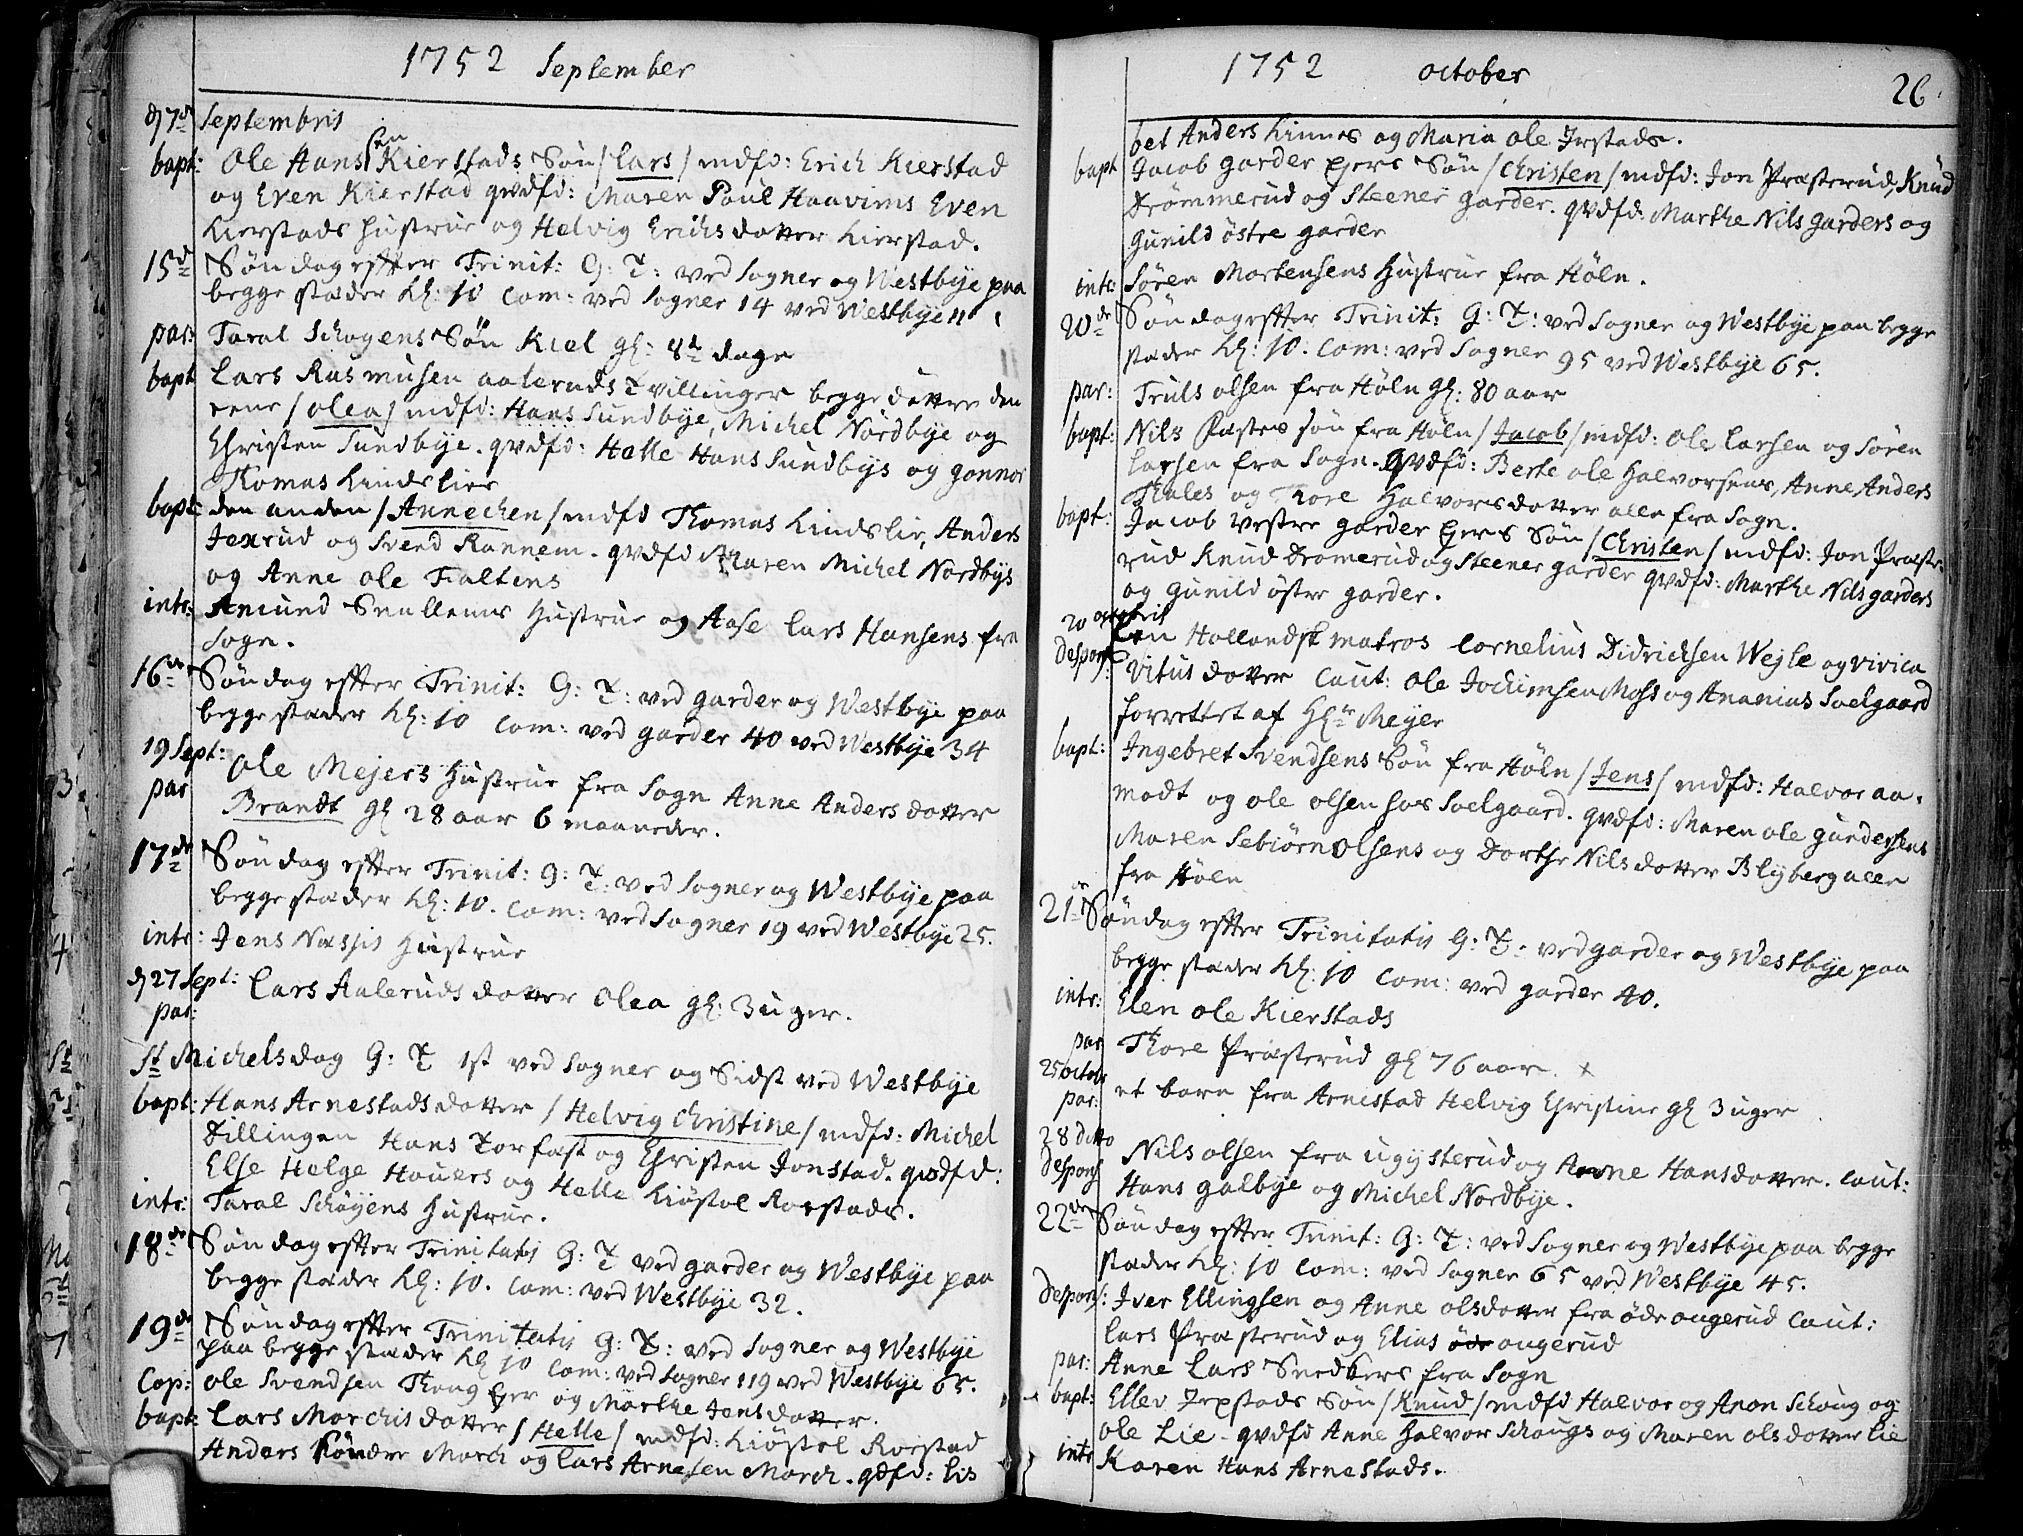 1752 September
d 7de Septembris
bapt: Ole Hans Søn Kierstads Søn / Lars / mdfd: Erich Kierstad
og Even Kierstad qvdfd: Maren Poul Haavims Even
Kierstads Hustrue og Helvig Erichsdotter Kierstad.
15de Søndag effter Trinit: G: T: ved Sogner og Westbye paa
begge stæder Kl: 10 Com: ved Sogner 14 ved Westbye 11
par: Taral Schøyens Søn Kiel gl: 8te dage
bapt Lars Rasmusen aaleruds Tvillinger begge døttre den
eene / Olea / mdfd: Hans Sundbye, Michel Nordbye og
Christen Sundbye. qvdfd: Helle Hans Sundbys og gonnor
Thomas Lindslies
bapt: den anden / Annechen / mdfd Thomas Lindslie, Anders
Jexrud og Svend Rannem. qvdfd Maren Michel Nordbys
og Anne Ole Faltins
intr: Amund Snellems Hustrue og Aase Lars Hansens fra
Sogn.
16de Søndag effter Trinit: G: T: ved garder og Westbye paa
begge stæder Kl: 10 Com: ved garder 40 ved Westbye 34
19 Sept: Ole Mejers Hustrue fra Sogn Anne Anders dotter
par Brandt gl 28 aar 6 maaneder.
17de Søndag effter Trinit: G: T: ved Sogner og Westbye paa
begge stæder Kl: 10. Com: ved Sogner 19 ved Westbye 25.
intr: Jens Næssis Hustrue
d 27 Sept: Lars Aaleruds dotter Olea gl: 3 uger.
par:
St Michelsdag G: T 1st ved Sogner og Sidst ved Westbye
bapt: Hans Arnestads dotter / Helvig Christine / mdfd: Michel
Dillingen Hans Torfast og Christen Jonstad. qvdfd:
Else Helge Houers og Helle Kiøstol Rorstads.
intr: Taral Schøyens Hustrue.
18de Søndag effter Trinitatis G: T ved garder og Westbye paa
begge stæder Kl: 10. Com: ved Westbye 32.
19de Søndag effter Trinitatis G: T: ved Sogner og Westbye
paa begge stæder Kl 10 Com: ved Sogner 119 ved Westbye 65.
Cop: Ole Svendsen Thoug Ejer og Marthe Jens dotter.
bapt: Lars Morchis dotter / Helle / mdfd: Kiøstol Rorstad
Anders Søndre Morch og Lars Arnesen Morch. qvdfd: Lis
1752 October 26
bet Anders Linnes og Maria Ole Irstads.
bapt Jacob garder Ejers Søn / Christen / mdfd: Jon Præsterud, Knud
Drømmerud og Steener garder. qvdfd: Marthe Nils garders og
Gunild østre garder
intr: Søren Mortensens Hustrue fra Høln.
20de Søndag effter Trinit: G: T: ved Sogner og Westbye paa begge
stæder Kl: 10. Com: ved Sogner 95 ved Westbye 65.
par: Truls Olsen fra Høln gl: 80 aar
bapt: Nils Pæters søn fra Høln / Jacob / mdfd: Ole Larsen og Søren
Larsen fra Sogn. qvdfd: Berte Ole Halvorsens, Anne Anders
Thales og Thore Halvorsdotter alle fra Sogn.
bapt: Jacob Vestre garder Ejers Søn / Christen / mdfd: Jon Præste-
rud Knud Dromerud og Steener garder qvdfd: Marthe Nils garders
og Gunild øster garder.
20 octobris
desponf: En Hollandsk matros Cornelius Didricksen Wejle og Vivica
Vitus dotter Caut: Ole Jochimsen Moss og Ananias Soelgaard
forrettet af Hr Meyer
bapt: Ingebret Svendsens Søn fra Høln / Jens / mdfd: Halvor aa-
modt og Ole Olsen hos Soelgaard. qvdfd: Maren Ole Gundersens
Maren Sebiørn Olsens og Dorthe Nils dotter Blyberg alle
fra Høln
21de Søndag effter Trinitatis G: T: ved garder og Westbye paa
begge stæder Kl: 10 Com: ved garder 40.
intr: Elen Ole Kierstads
par Thore Præsterud gl 76 aar. x
25 octobr
par: et barn fra Arnestad Helvig Christine gl 3 uger
28 Ditto
despons Nils Olsen fra Ugysterud og Anne Hansdotter. Caut:
Hans Galbye og Michel Nordbye.
22de Søndag effter Trinit: G: T: ved Sogner og Westbye paa begge
stæder Kl: 10 Com: ved Sogner 65 ved Westbye 45.
despons: Iver Ellingsen og Anne Olsdotter fra øde ougerud Caut:
Lars Præsterud og Elias øde ougerud
par: Anne Lars Snedkers fra Sogn
bapt: Ellev Irpstads Søn / Knud / mdfd Halvor og Anon Schoug og
Ole Lie. qvdfd Anne Halvor Schougs og Maren Olsdotter Lie
intr Karen Hans Arnestads.